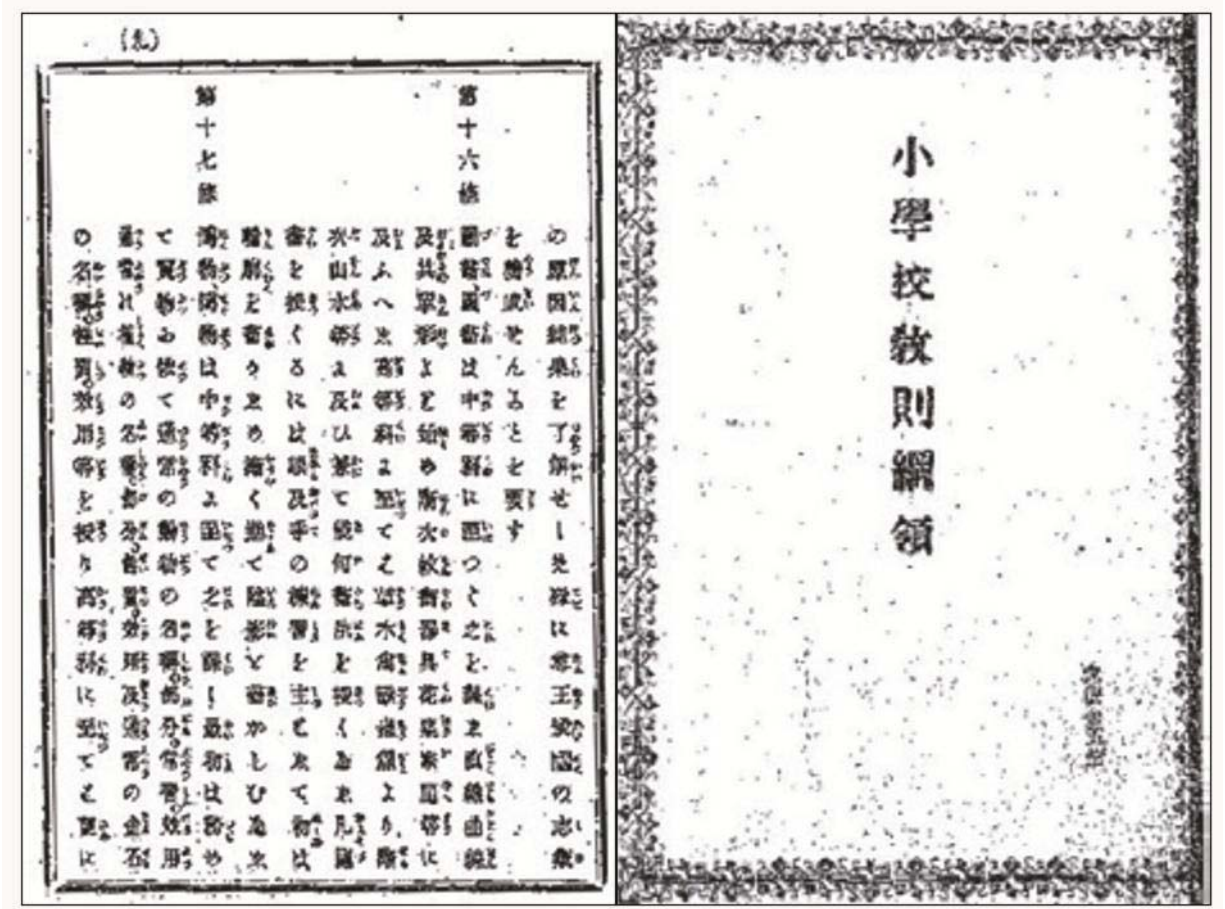 小學校教則綱領
(九)
の原因結果を了解せしめ殊に尊王愛國の志氣
を養成せんことを要す
第十六條 圖畫圖畫は中等科に至つて之を課し直線曲線
及其單形より始め漸次紋畫器具花葉家屋等に
及ふへし高等科に至ては草木禽獸蟲魚より漸
次山水等に及ひ兼て幾何畫法を授くへし凡圖
畫を授くるには眼及手の練習を主として初は
輪廓を畫かしめ漸く進て陰影を畫かしむへし
第十七條 博物博物は中等科に至て之を課し最初は務め
て實物に依て通常の動物の名稱部分常習效用
通常の植物の名稱部分性質效用及通常の金石
の名稱性質效用等を授け高等科に至ては更に